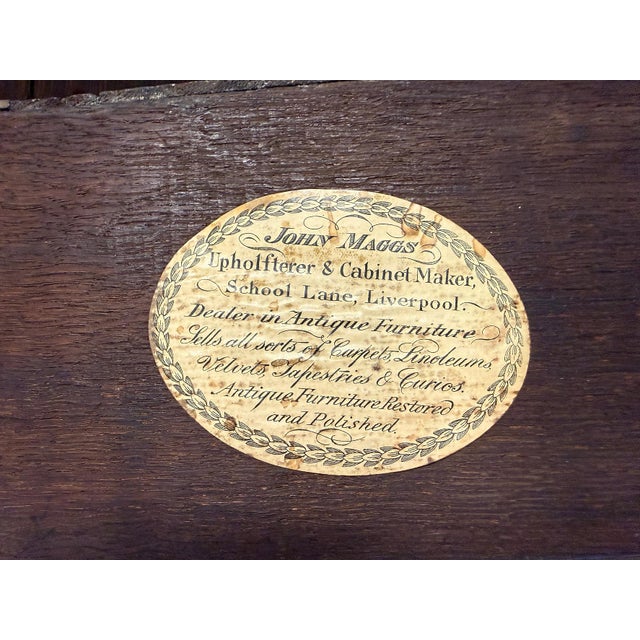 JOHN MAGGS
Upholſterer & Cabinet Maker,
School Lane, Liverpool.
Dealer in Antique Furniture
Sells all sorts of Carpets, Linoleums,
Velvets, Tapestries & Curios.
Antique Furniture Restored
and Polished.